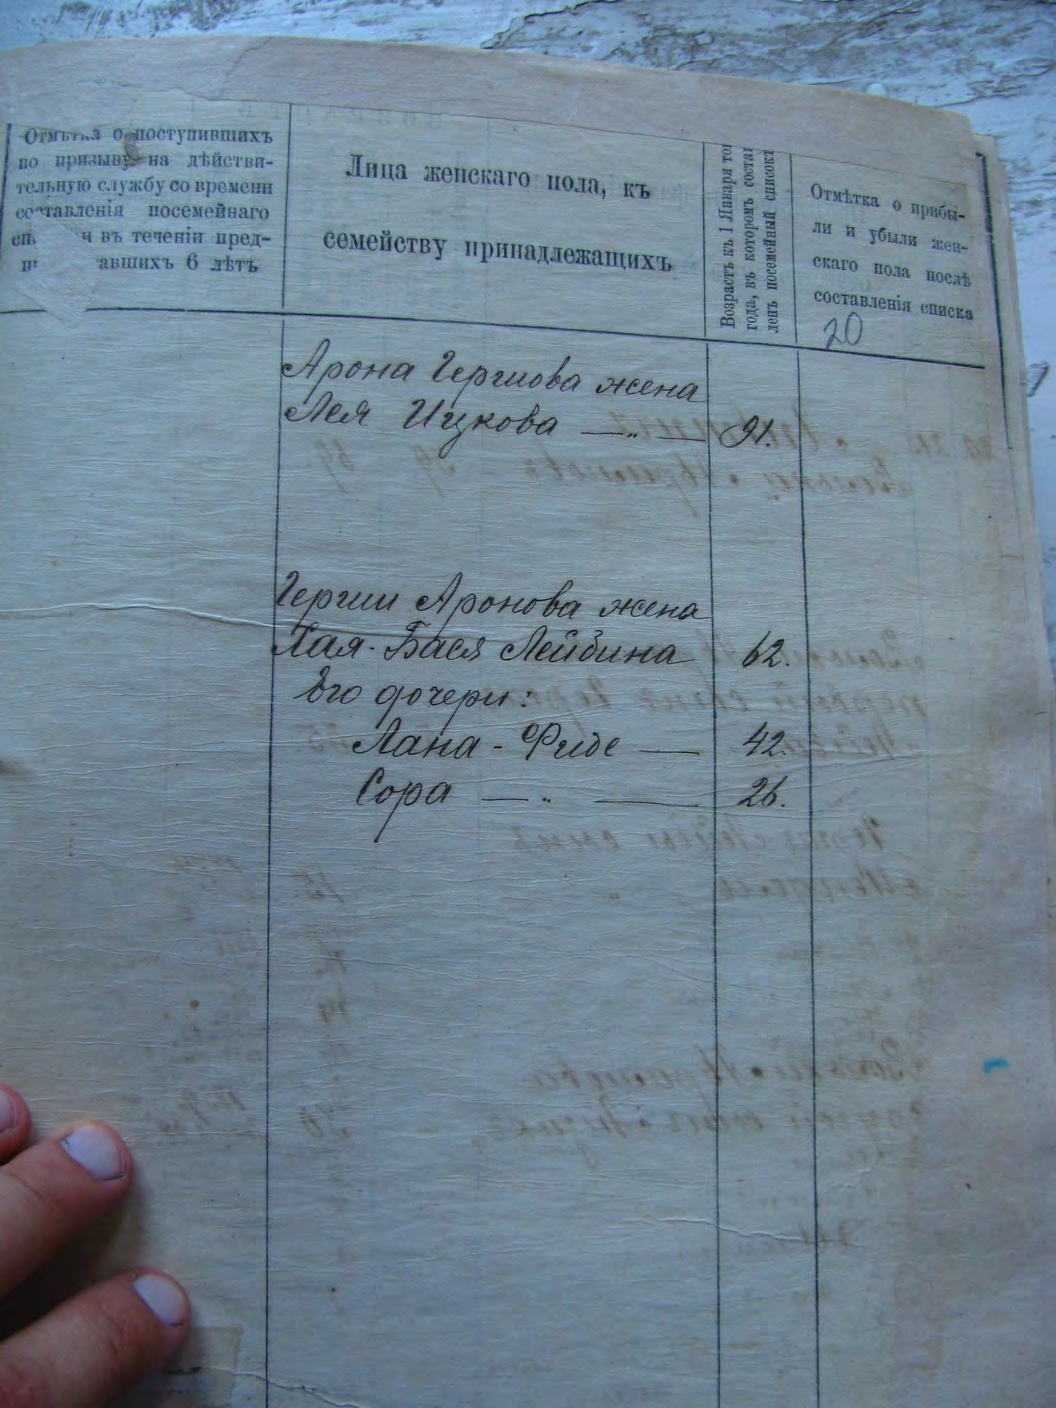 Отмѣтка о поступившихъ
по призыву на дѣйстви-
тельную службу со времени
составленія посемейнаго
въ теченіи пред-
авшихъ 6 лѣтъ
Лица женскаго пола, къ
семейству принадлежащихъ
Возрастъ къ 1 Января
года, въ которомъ
посемейный списокъ
Отмѣтка о прибы-
ли и убыли жен-
скаго пола послѣ
составленія списка
20
Арона Гершова жена
Лея Ицкова — " — 91.
Герши Аронова жена
Хая-Бася Лейбина 62.
Его дочери:
Лана - Фиде — 42.
Сора — " — 26.